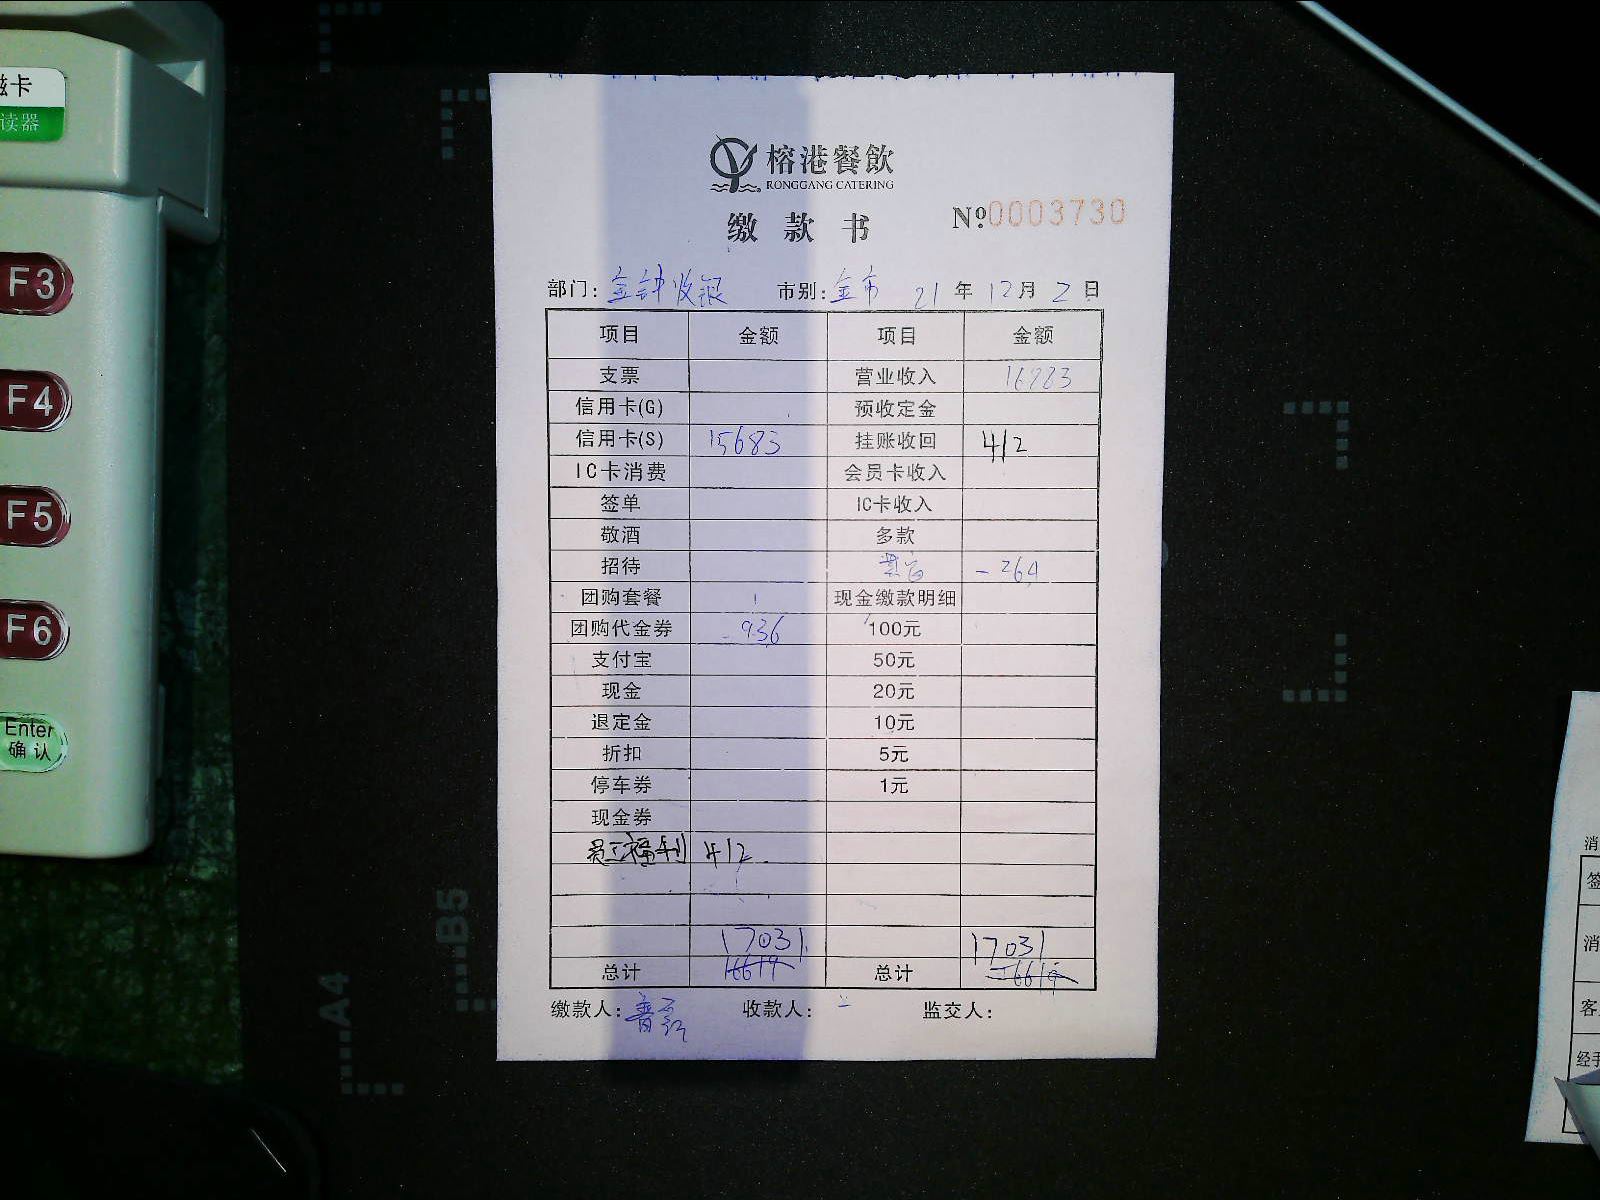 磁卡
读器
F3
F4
F5
F6
Enter
确认
A4
B5
榕港餐飲
RONGGANG CATERING
缴款书
№0003730
部门: 金钟收银 市别: 全市 21年12月2日
项目 金额 项目 金额
支票 营业收入 16883
信用卡(G) 预收定金
信用卡(S) 15683 挂账收回 412
IC卡消费 会员卡收入
签单 IC卡收入
敬酒 多款
招待 -264
团购套餐 现金缴款明细
团购代金券 936 100元
支付宝 50元
现金 20元
退定金 10元
折扣 5元
停车券 1元
现金券
员工福利 412
17031 17031
总计 16619 总计 16619
缴款人: 收款人: 监交人:
消
签
消
客
经手